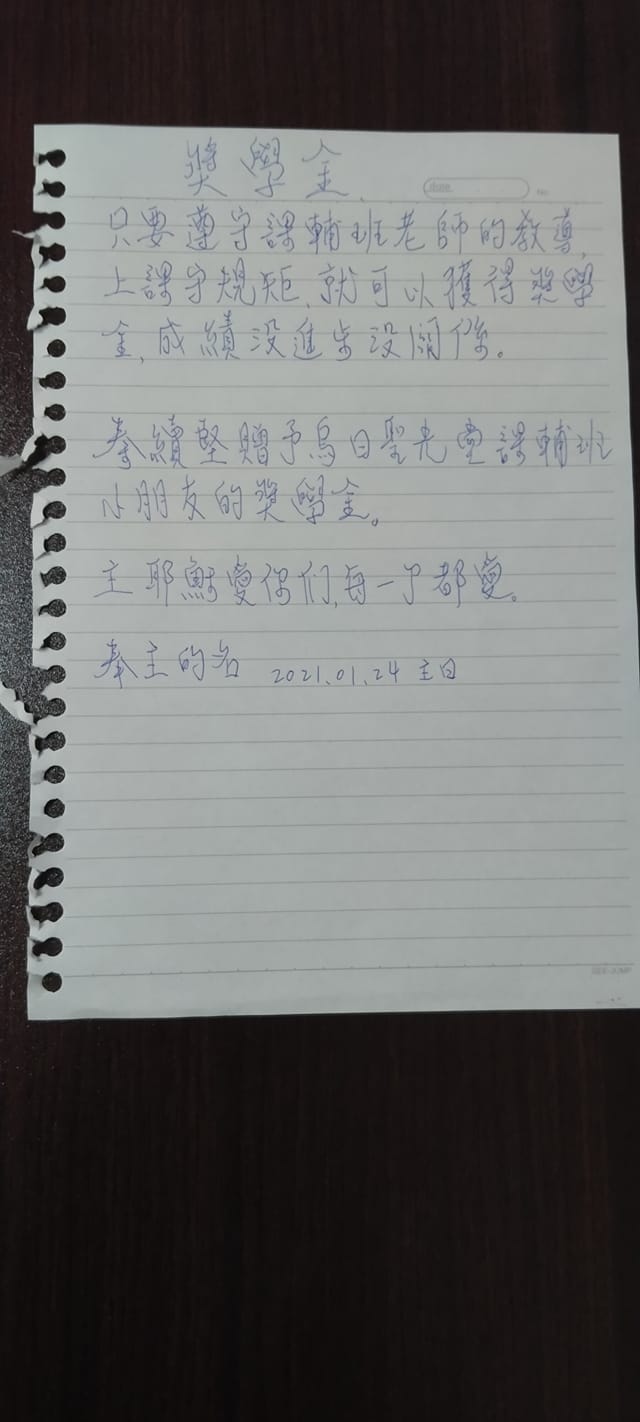 獎學金
date
NO.
只要遵守課輔班老師的教導,
上課守規矩,就可以獲得獎學
金,成績没進步没關係。
秦續堅贈予烏日聖光堂課輔班
小朋友的獎學金。
主耶穌愛你们,每一个都愛。
奉主的名 2021.01.24 主日